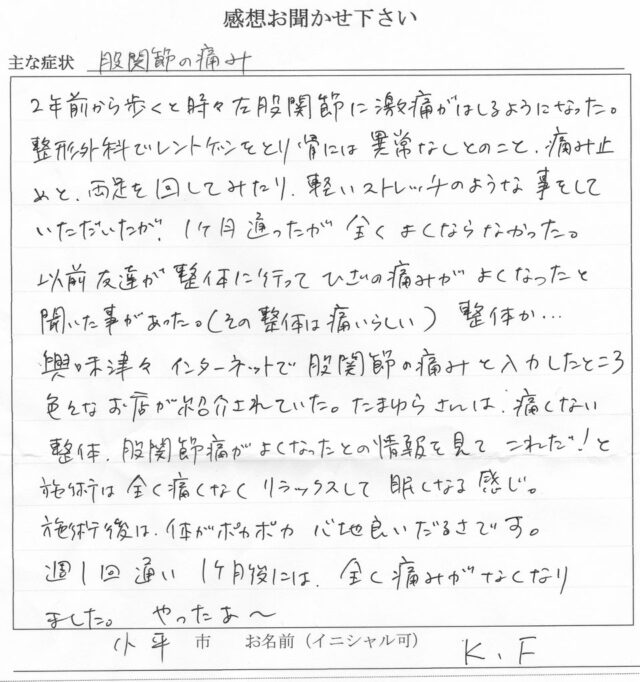 感想お聞かせ下さい
主な症状 股関節の痛み
2年前から歩くと時々左股関節に激痛がはしるようになった。
整形外科でレントゲンをとり骨には異常なしとのこと、痛み止
めと、両足を回してみたり、軽いストレッチのような事をして
いただいたが、1ヶ月通ったが全くよくならなかった。
以前友達が整体に行ってひざの痛みがよくなったと
聞いた事があった。(その整体は痛いらしい) 整体か…
興味津々インターネットで股関節の痛みと入力したところ
色々なお店が紹介されていた。たまゆらさんは、痛くない
整体、股関節痛がよくなったとの情報を見てこれだ!と
施術は全く痛くなくリラックスして眠くなる感じ。
施術後は、体がポカポカ心地良いだるさです。
週1回通い1ヶ月後には、全く痛みがなくなり
ました。 やったぁ〜
小平市 お名前(イニシャル可) K、F